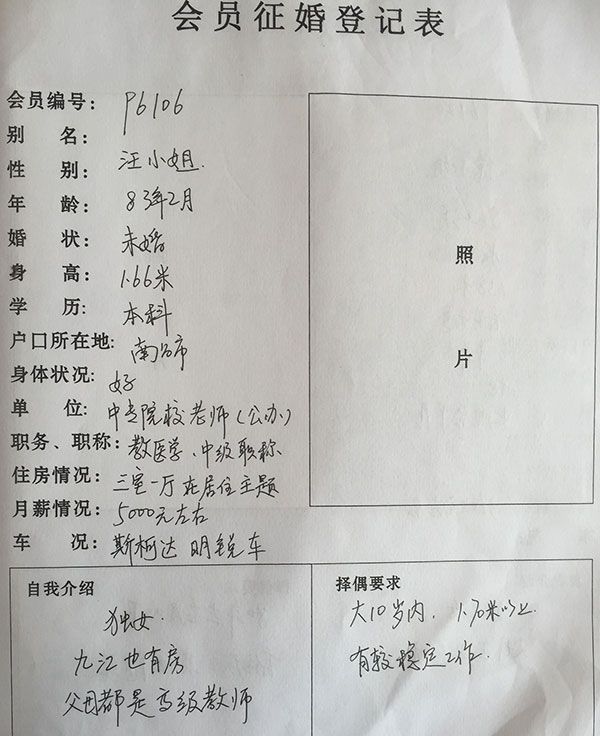 会员征婚登记表
会员编号: P6106
别 名:
性 别: 汪小姐.
年 龄: 83年2月
婚 状: 未婚
身 高: 1.66米
学 历: 本科
户口所在地: 南昌市
身体状况: 好
单 位: 中专院校老师(公办)
职务、职称: 教医学、中级职称
住房情况: 三室一厅 在居住主题
月薪情况: 5000元左右
车 况: 斯柯达 明锐车
照
片
自我介绍
独女.
九江也有房
父母都是高级教师
择偶要求
大10岁内, 1.70米以上
有较稳定工作.